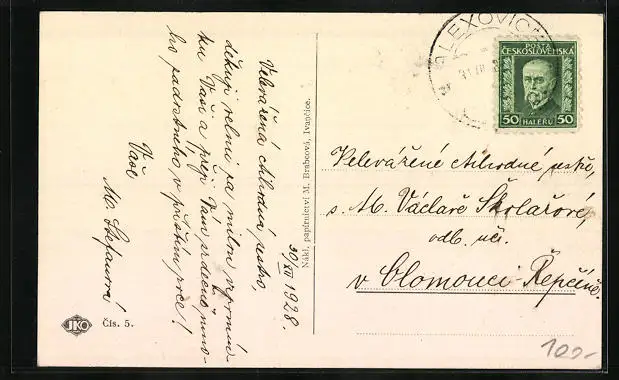 Velevážená ctihodná sestro,
děkuji velmi za milou vzpomín-
ku Vaši a přeji Vám srdečně mno-
ho zadostného v příštím roce!
Vaše
M. Štefanová
30/XII 1928.
Nákl. papírnictví M. Brabcová, Ivančice.
JKO
Čís. 5.
OLEXOVIC
31 XII
POŠTA
ČESKOSLOVENSKÁ
50 HALÉŘŮ 50
Velevážené ctihodné sestře,
s. M. Václavě Školařové,
odb. uči.
v Olomouci-Řepčíně.
100,-